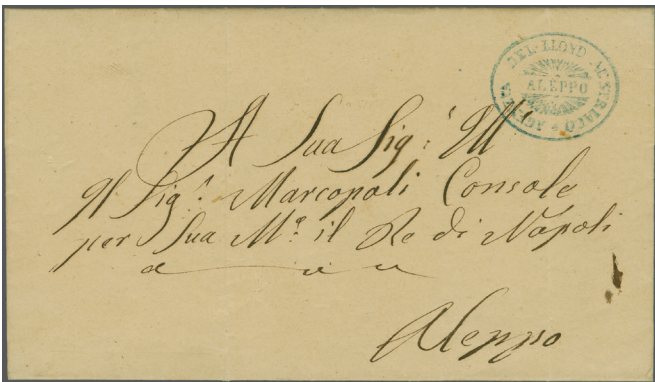 AGENZIA DEL LLOYD AUSTRIACO
ALEPPO
A Sua Sig: Ill
Il Sig.r Marcopoli Console
per Sua M.a il Re di Napoli
a
Aleppo